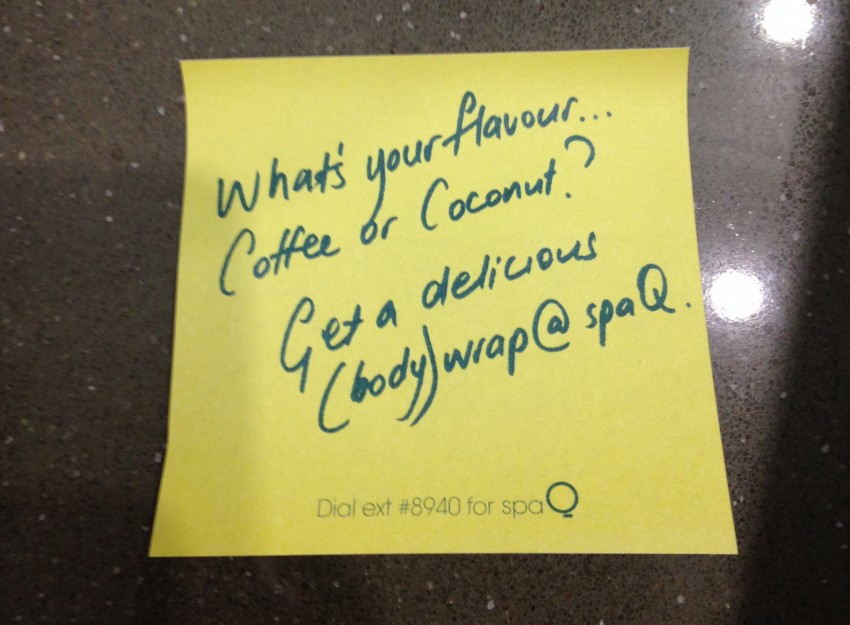 What's your flavour...
Coffee or Coconut?
Get a delicious
(body) wrap @ spaQ.
Dial ext #8940 for spaQ